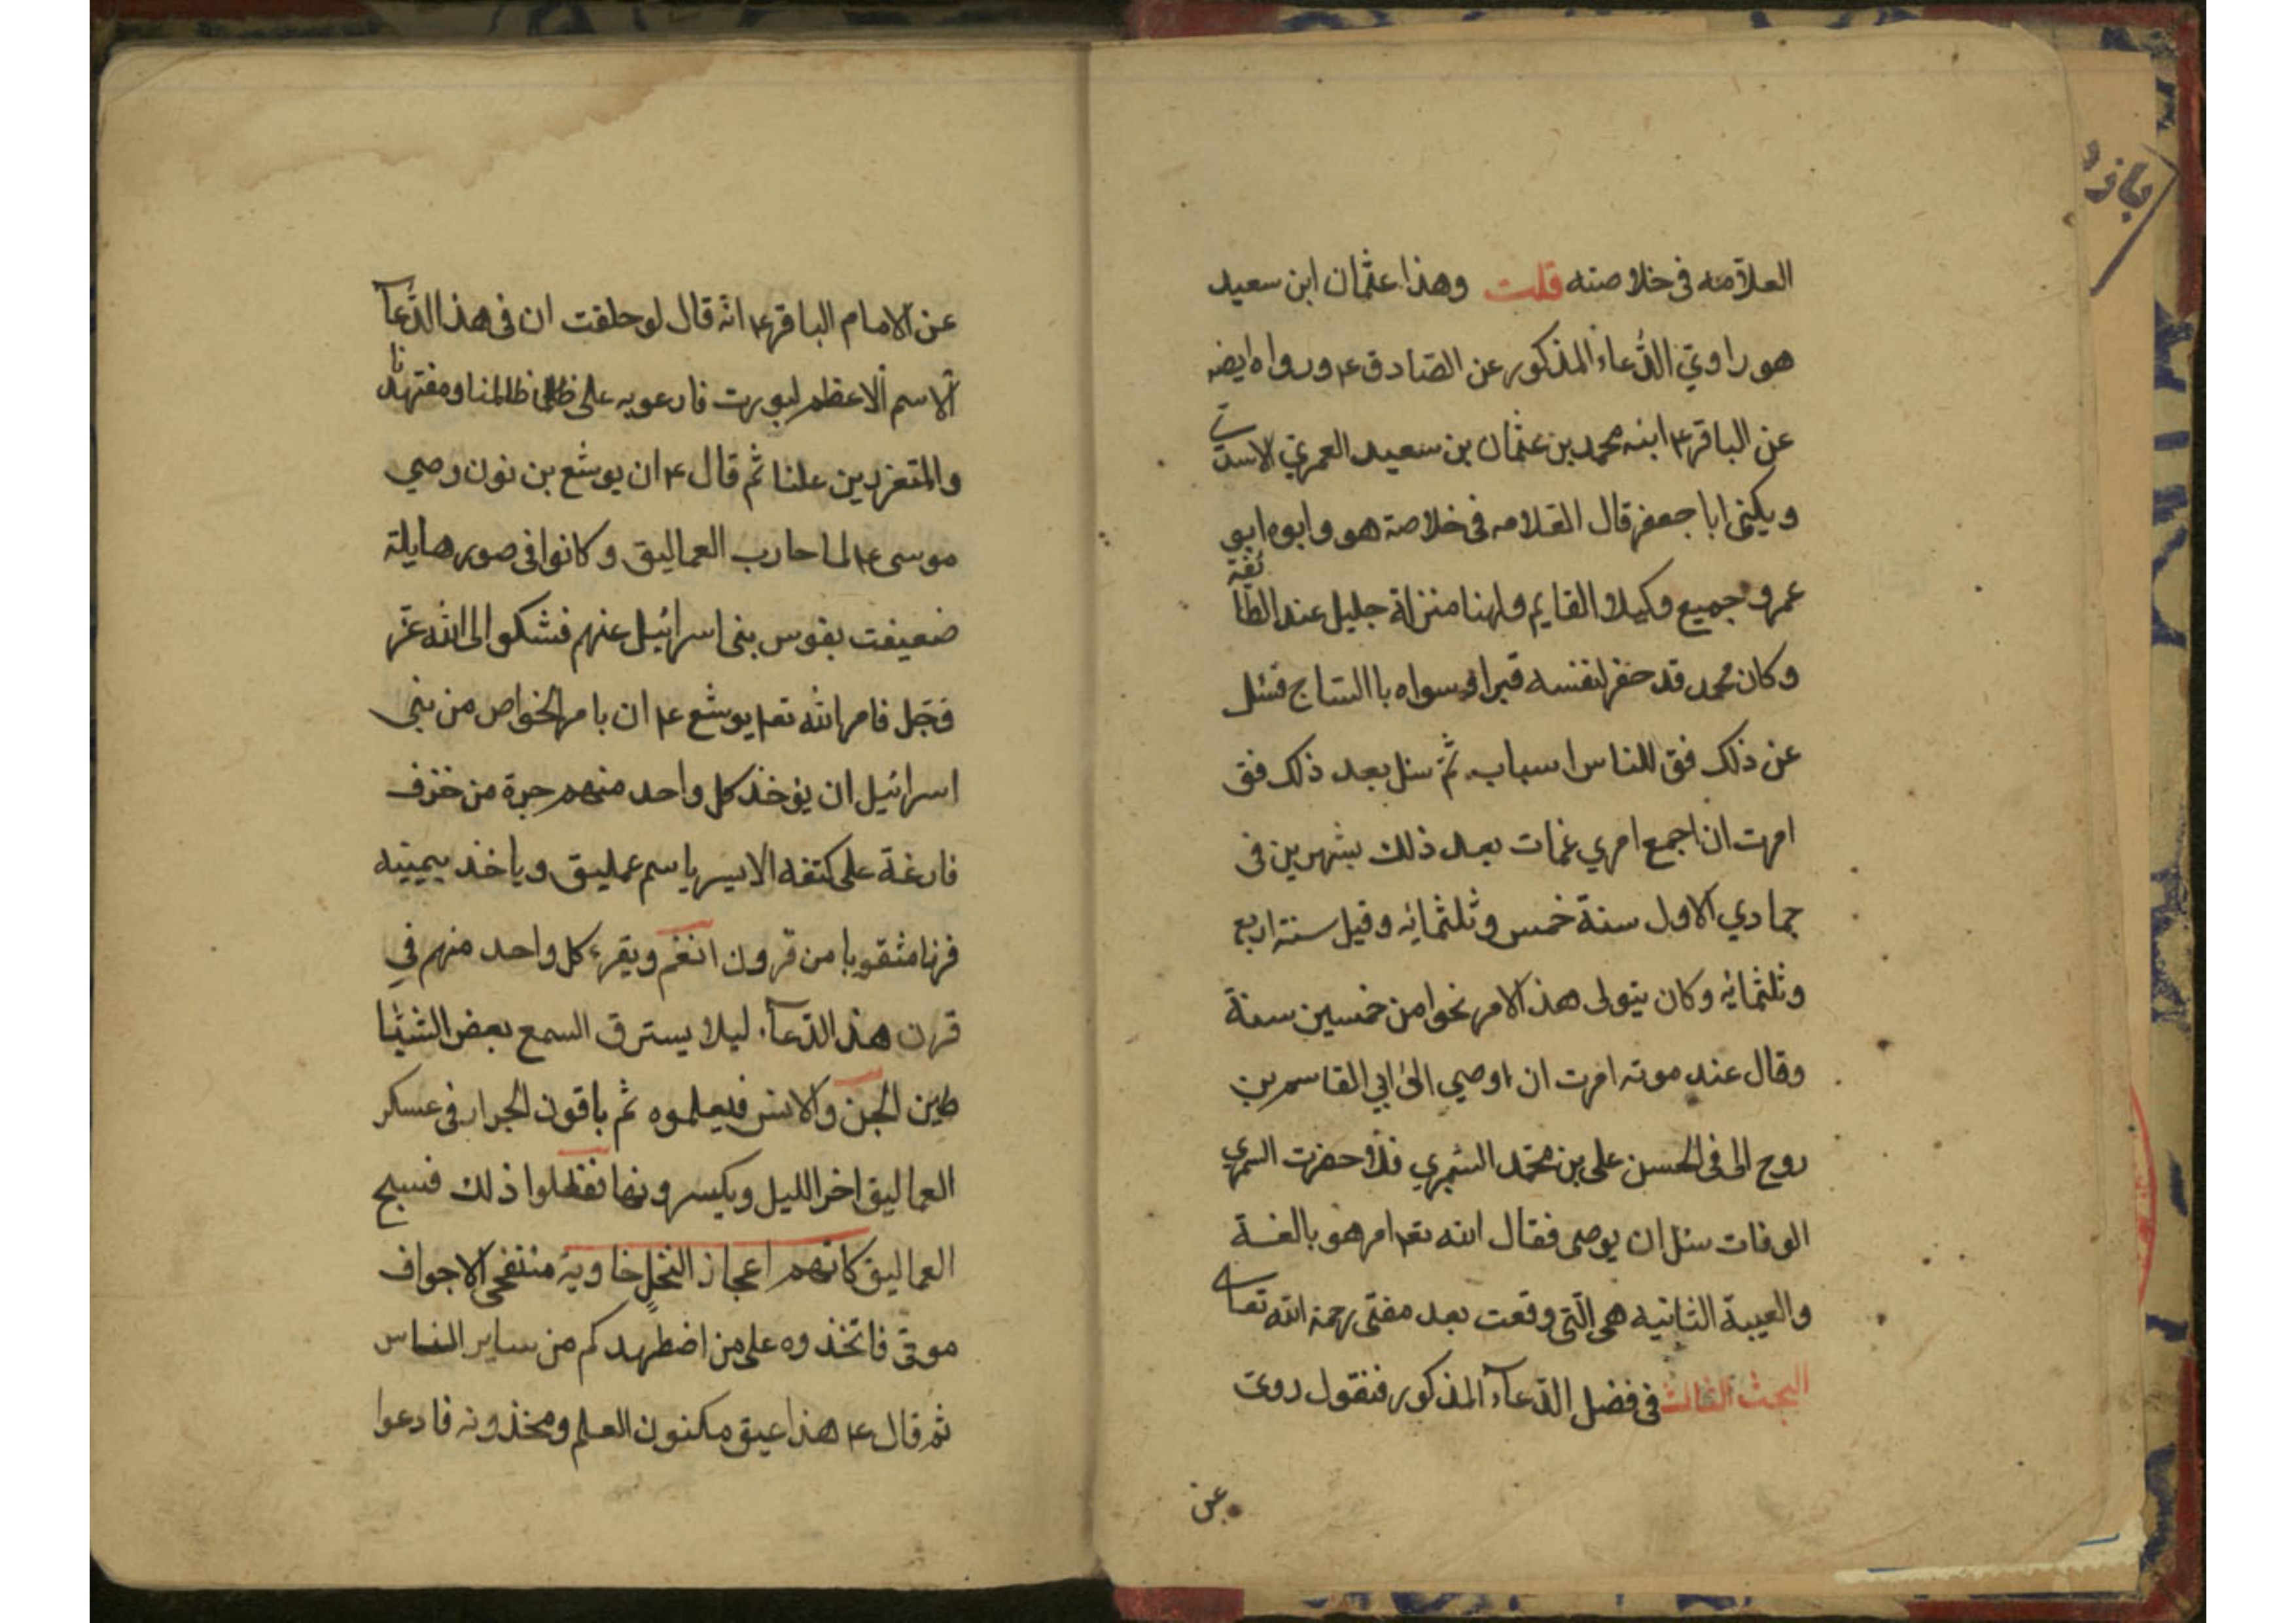 العلامه فى خلاصته قلت وهذا عثمان ابن سعيد
هو راوي الدعاء المذكور عن الصادق ع ورواه ايضه
عن الباقر ع ابنه محمد بن عثمان بن سعيد العمري الاسدي
ويكنى ابا جعفر قال العلامه فى خلاصة هو وابوه ابو
عمرو جميع وكيلا القايم ولهنا منزلة جليل عند الطائفة
وكان محمد قد حفر لنفسه قبرا وسواه باالساج فسئل
عن ذلك فق للناس اسباب ثم سئل بعد ذلك فق
امرت ان اجمع امري فمات بعد ذلك بشهرين فى
جمادي الاول سنة خمس وثلثمائه وقيل سنة اربع
وثلثمائه وكان يتولى هذ الامر نحوا من خمسين سنة
وقال عند موته امرت ان اوصي الى ابي القاسم بن
روح الى فى الحسن على بن محمد السمري فلما حضرت السمري
الوفات سئل ان يوصى فقال الله تع امر هو بالغة
والغيبة الثانيه هى التي وقعت بعد مضى رحمة الله تعالى
البحث الثالث فى فضل الدعاء المذكور فنقول روى
عن
عن الامام الباقر ع انه قال لو حلفت ان فى هذ الدعآ
الاسم الاعظم لبورت فادعو به على ظالمنا ومضتهدنا
والمتعززين علنا ثم قال ع ان يوشع بن نون وصي
موسى ع لما حارب العماليق وكانوا فى صور هايلة
ضعيفت نفوس بنى اسرائيل عنهم فشكوا الى الله عز
وجل فامر الله تع يوشع ع ان يامر الخواص من بنى
اسرائيل ان يؤخذ كل واحد منهم جرة من خزف
فارغة على كتفه الايسر باسم عمليق وياخذ بيمينه
قرنا مثقوبا من قرون الغنم ويقرء كل واحد منهم في
قرن هذ الدعآء ليلا يسترق السمع بعض الشيا
طين الجن والانس فيعلموه ثم ياقون الجرار فى عسكر
العماليق اخر الليل ويكسرونها ففعلوا ذلك فسبح
العماليق كانهم اعجاز النخل خاوية منتفخى الاجواف
موتى فاتخذوه على من اضطهدكم من ساير الناس
ثم قال ع هذا عيق مكنون العلم ومخذونه فادعوا